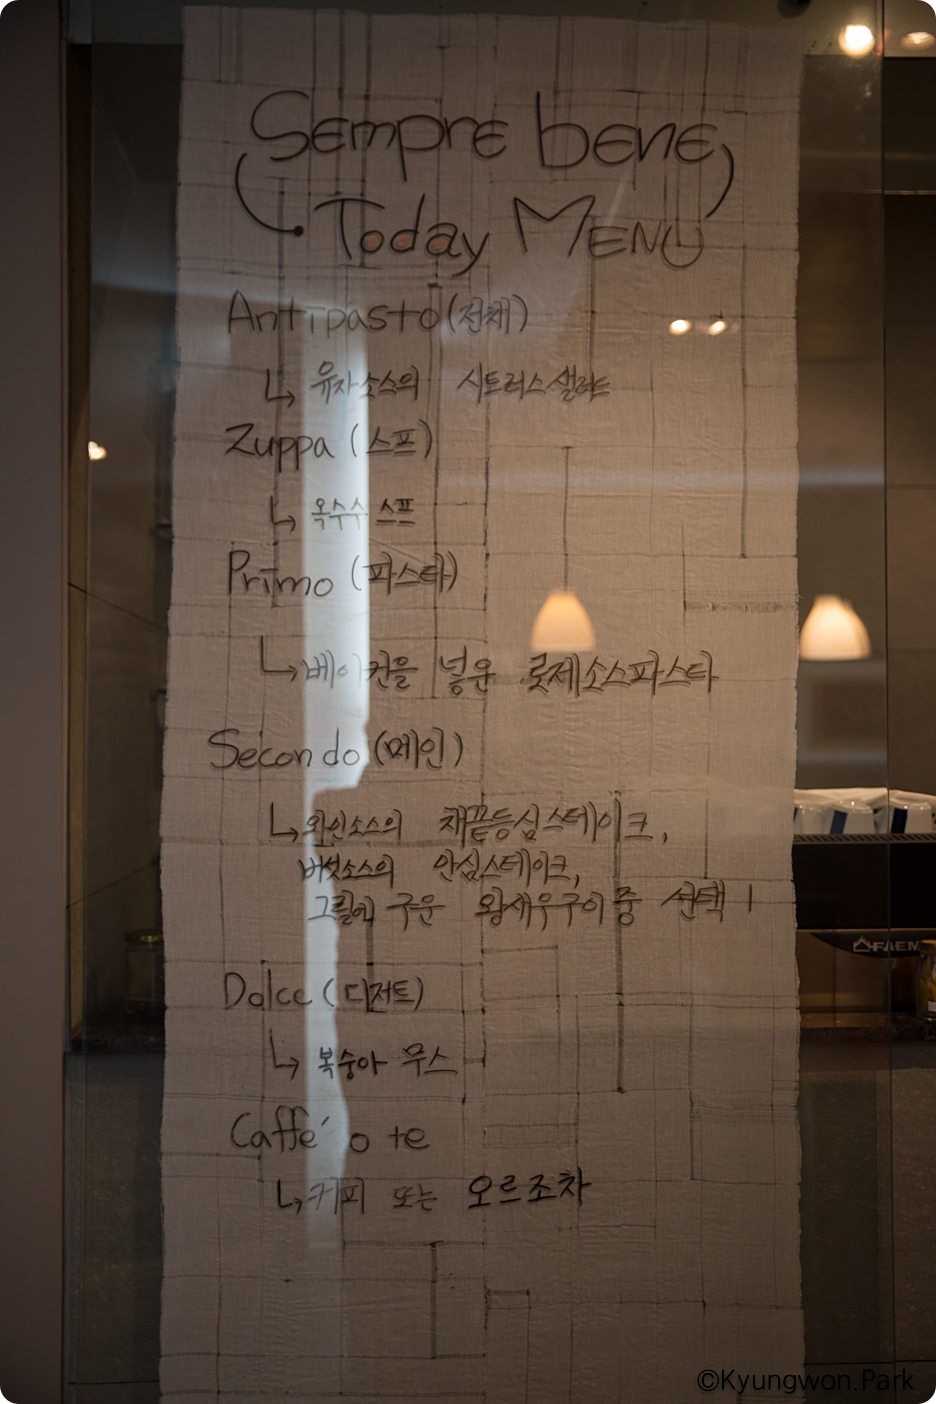 Sempre bene
Today MENU
Antipasto (전채)
↳ 유자소스의 시트러스샐러드
Zuppa (스프)
↳ 옥수수 스프
Primo (파스타)
↳ 베이컨을 넣은 로제소스파스타
Secondo (메인)
↳ 와인소스의 채끝등심스테이크,
버섯소스의 안심스테이크,
그릴에 구운 왕새우구이 중 선택 1
Dolce (디저트)
↳ 복숭아 무스
Caffé o te
↳ 커피 또는 오르조차
FAEM
©Kyungwon.Park